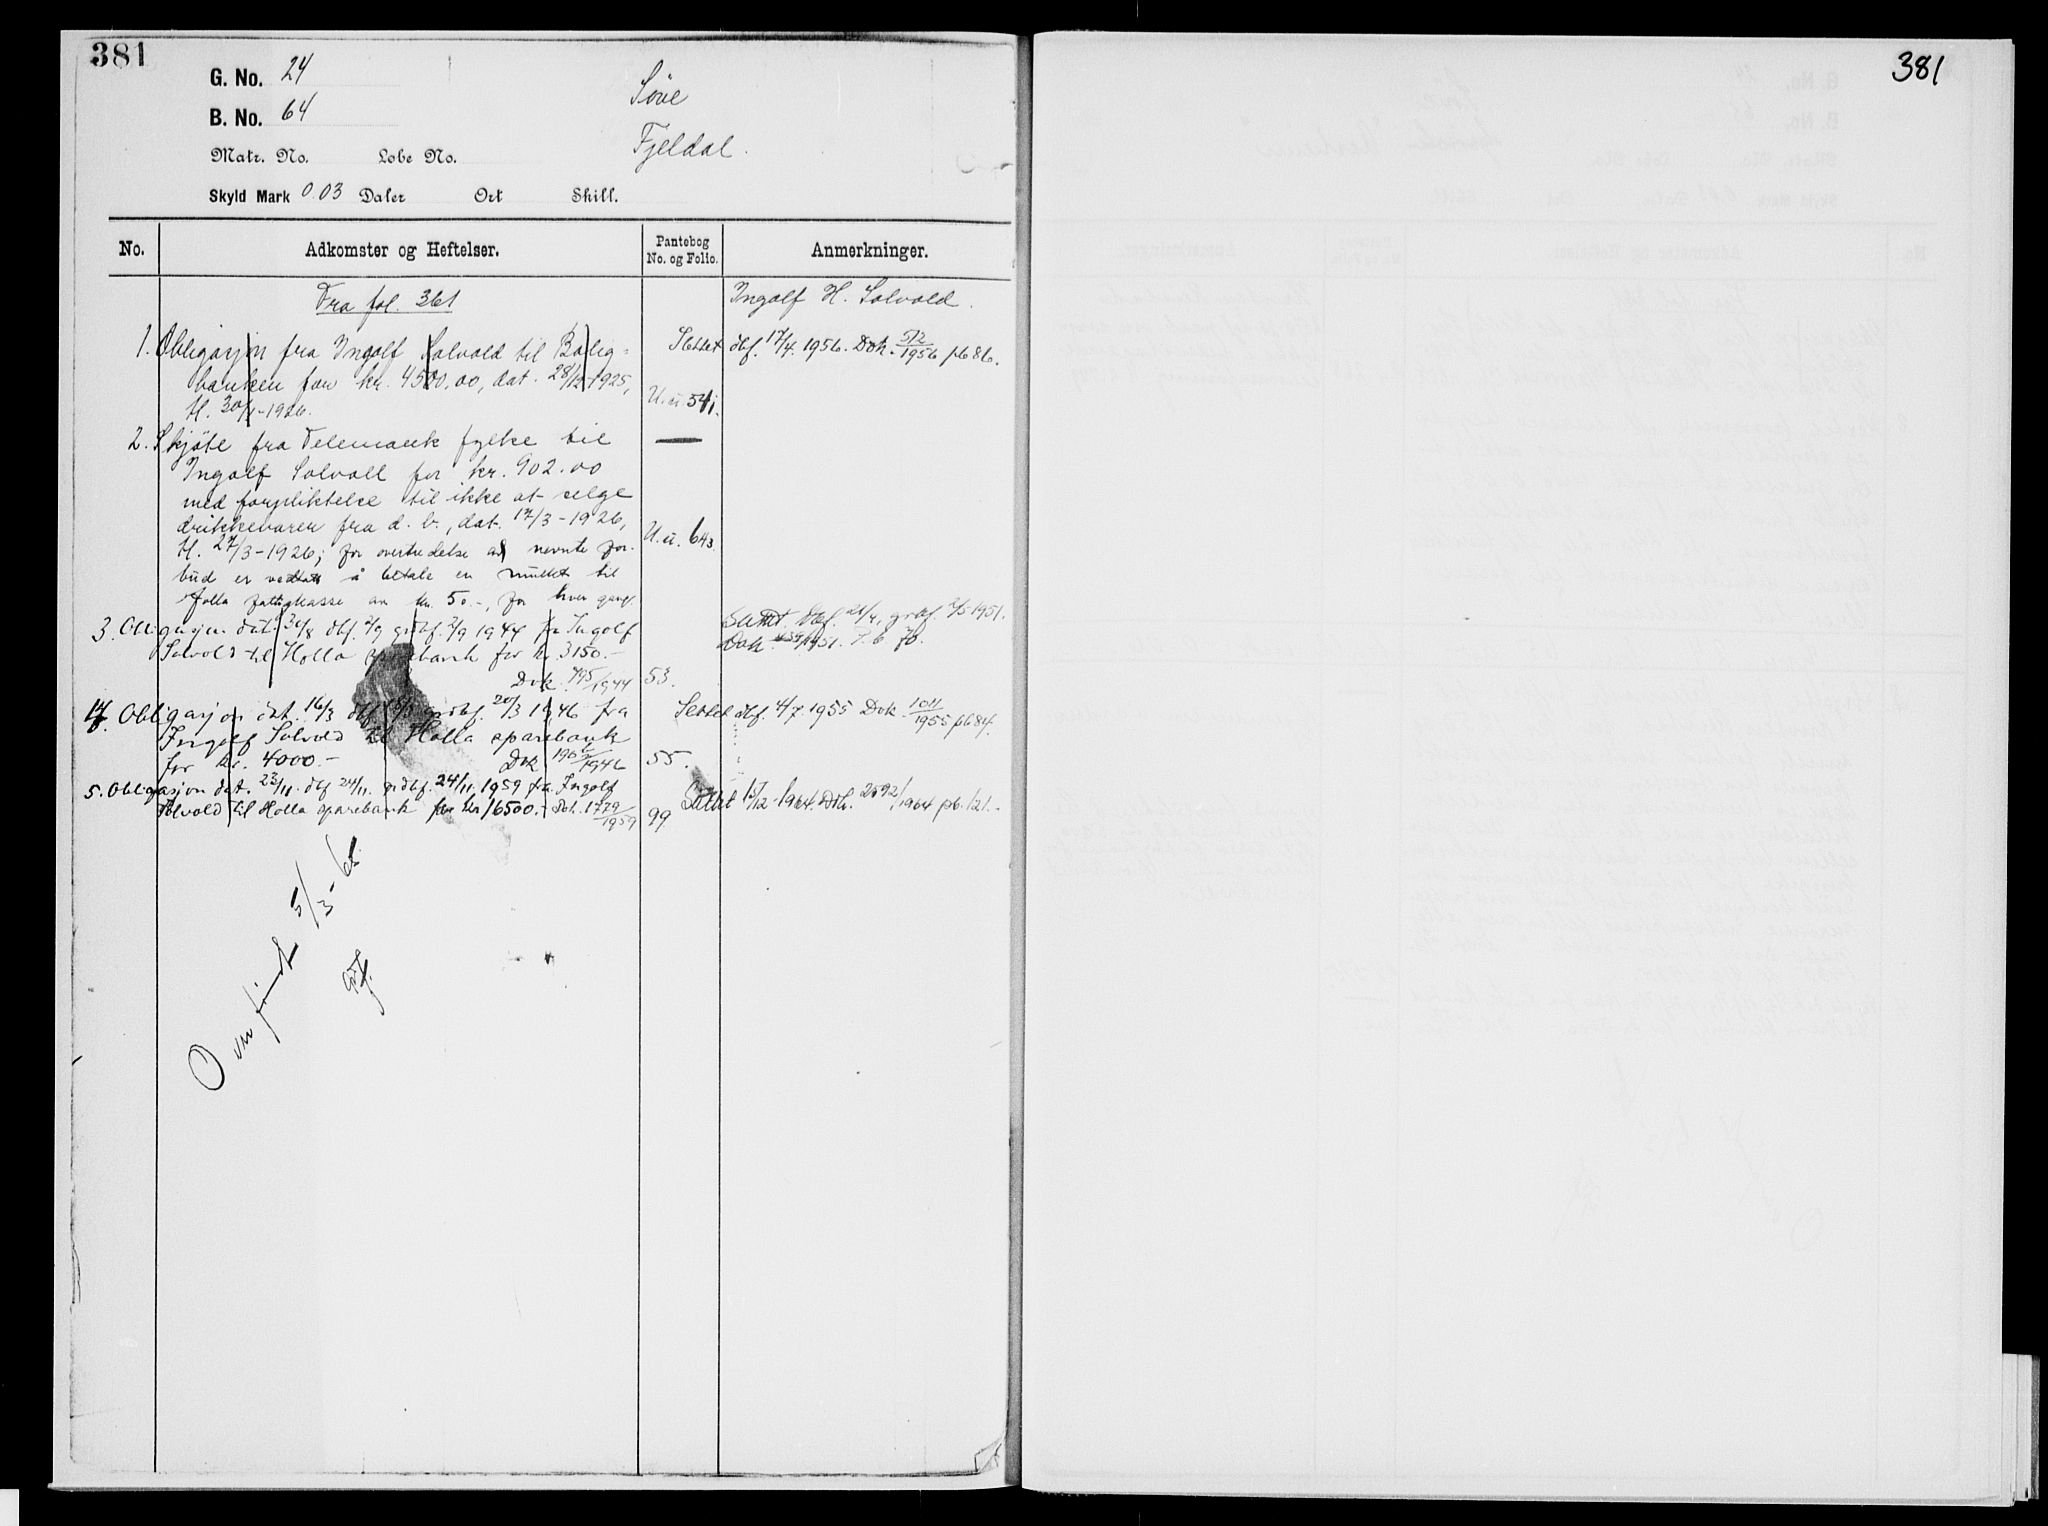 381
G. No. 24
B. No. 64
Matr. No. Løbe No.
Skyld Mark 0.03 Daler Ort Skill.
Søve
Fjeldal.
No. Adkomster og Heftelser. Pantebog No. og Folio. Anmerkninger.
Fra fol. 361
Ingolf H. Solvold.
1. Obligasjon fra Ingolf Solvold til Bolig-
banken for kr. 4500,00, dat. 28/12-1925,
tl. 30/1-1926. U.u. 541.
Slettet dbf. 17/4. 1956. Dok. 512/1956 pb 86.
2. Skjøte fra Telemark fylke til —
Ingolf Solvoll for kr. 902.00
med forpliktelse til ikke at selge
drikkevarer fra d. b., dat. 17/3-1926,
tl. 27/3-1926; for overtredelse av nevnte for- U.u. 643.
bud er vedtatt å betale en mulkt til
Holla fattigkasse av kr. 50.-, for hver gang.
3. Obligasjon dat. 30/8 dbf. 2/9 grdbf. 2/9 1944 fra Ingolf
Solvold til Holla sparebank for kr. 3150.-
Dok. 795/1944 53.
Slettet. dbf. 21/4, grbf. 2/5 1951.
Dok. 1951. P.b 70.
4. Obligasjon dat. 16/3 dbf. grdbf. 20/3 1946 fra
Ingolf Solvold til Holla sparebank
for kr. 4000.- Dok 1946 55.
Slettet dbf. 4/7. 1955 Dok 1011/1955 pb 84.
5. Obligasjon dat. 23/11. dbf 24/11. grdbf. 24/11. 1959 fra Ingolf
Solvold til Holla sparebank for kr 16500.- Dok. 1779/1959 99
Slettet 15/12-1964. Dok. 2592/1964 pb. 121.-
Overført 5/3-65
381